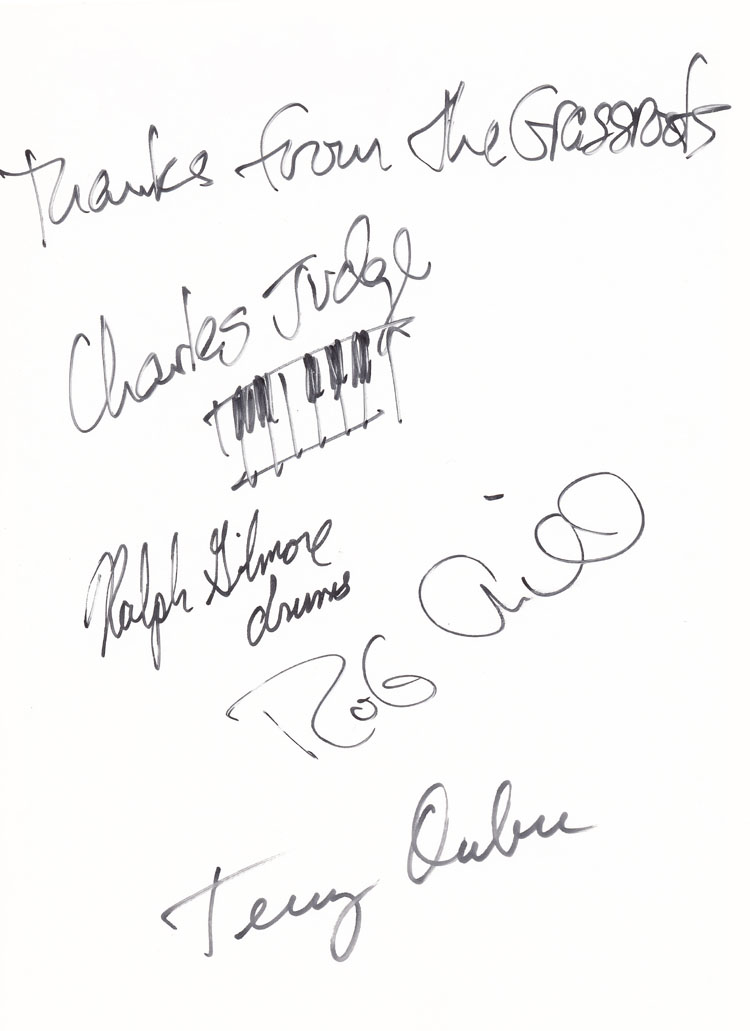 Thanks from the Grassroots
Charles Judge
Ralph Gilmore
drums
Rob Grill
Terry Oubre